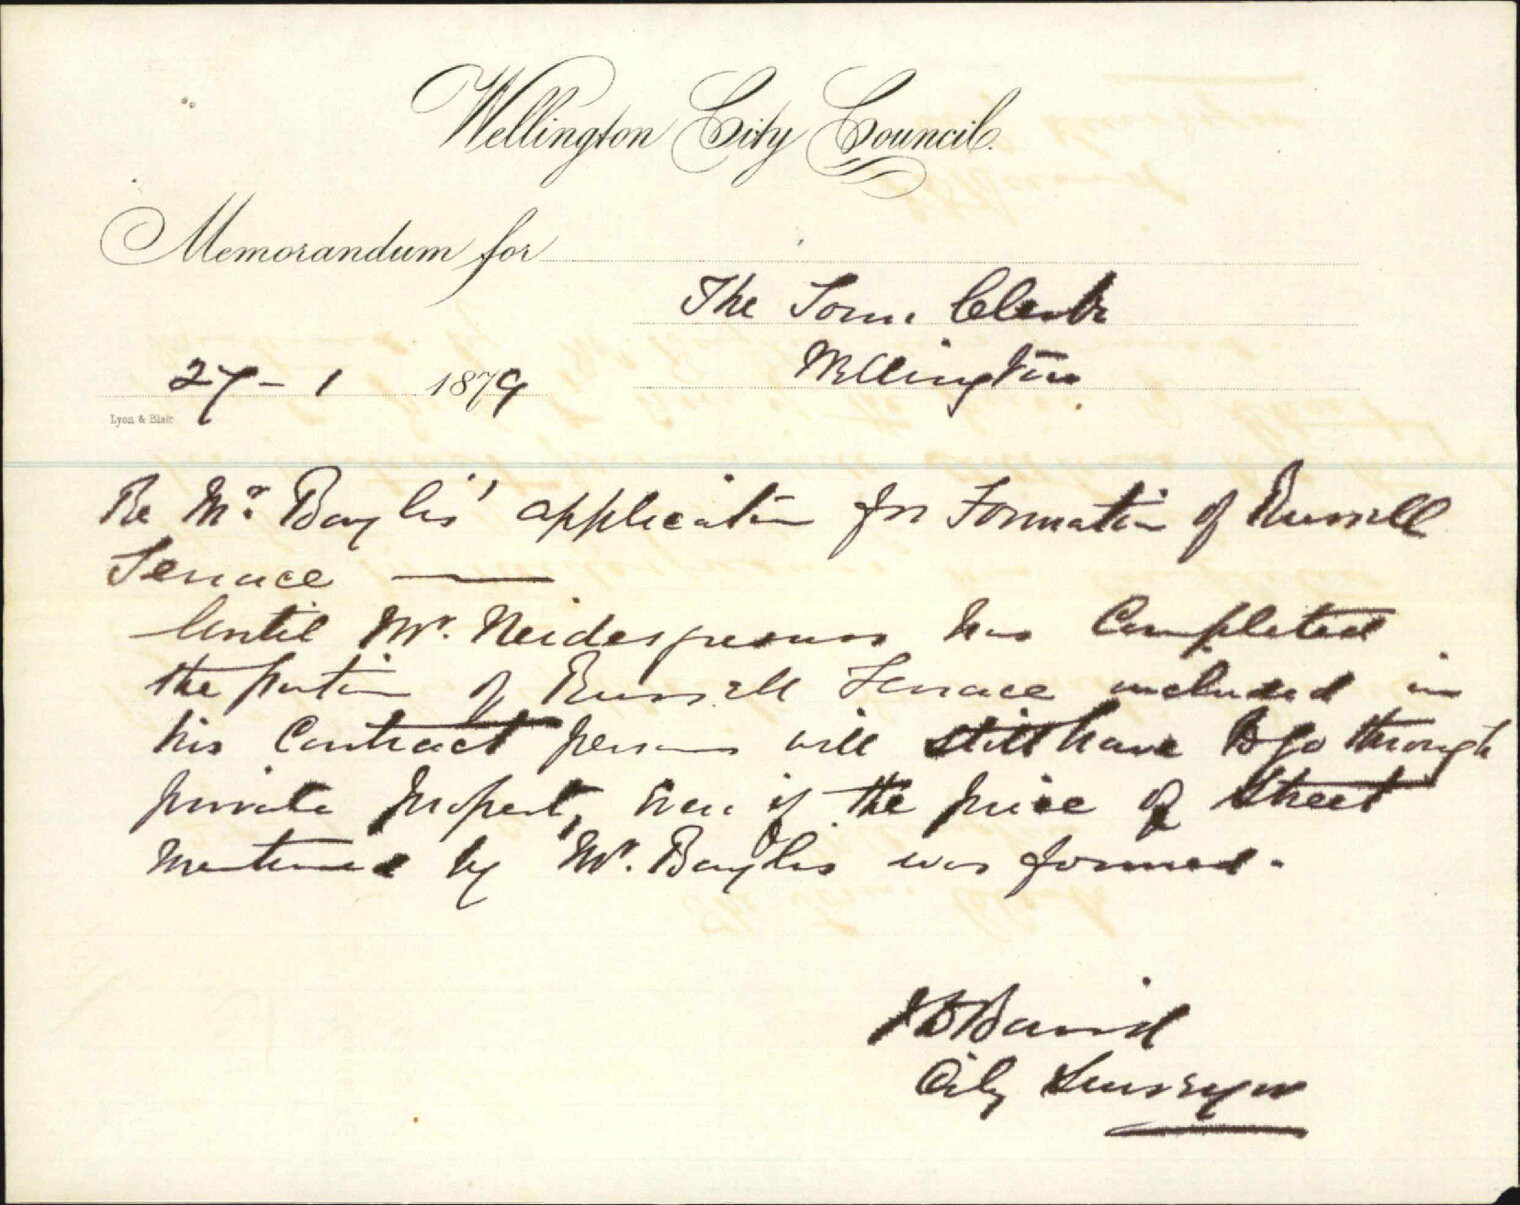 Wellington City Council.
Memorandum for
The Town Clerk
Wellington
27 - 1 1879
Lyon & Blair
Re Mr. Baylis' application for Formation of Russell
Terrace
Until Mr. has Completed
the portion of Russell Terrace included in
his Contract persons will still have to go through
private property, even if the piece of Street
mentioned by Mr. Baylis was formed.
Baird
City Surveyor